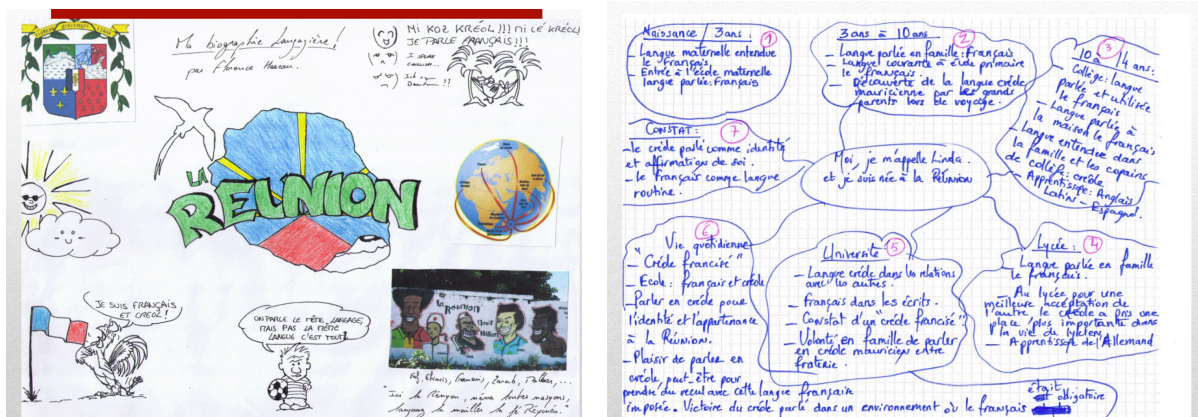 Ma biographie langagière !
par Florence
MI KOZ KRÉOL !!! NI LÉ KRÉOL
JE PARLE FRANÇAIS !!!
I SPEAK
LA
REUNION
JE SUIS FRANÇAIS,
ET CREOL !
ON PARLE LE MÊME LANGAGE,
MAIS PAS LA MÊME
LANGUE C'EST TOUT.
la Réunion
Kaf, Chinois, Français, Zarab, Malbar, ...
Naissance / 3 ans :
1
- Langue maternelle entendue
le français.
- Entrée à l'école maternelle
langue parlée : Français
3 ans à 10 ans
2
- Langue parlée en famille : Français
- Langue courante à école primaire
le français.
- Découverte de la langue créole
mauricienne par les grands
parents lors de voyage.
3
10 à 14 ans :
- Collège : langue
parlée et utilisée
le français
- Langue parlée à
la maison le français
- Langue entendue dans
la famille et les copains
de collège : créole
- Apprentissage : Anglais
Latin - Espagnol.
CONSTAT :
7
- le créole parlé comme identité
et affirmation de soi.
- le français comme langue
routine.
Moi, je m'appelle Linda.
et je suis née à la RÉUNION
6
Vie quotidienne
- "Créole francisé"
- Ecole : français et créole
- Parler en créole pour
l'identité et l'appartenance
à la Réunion.
- Plaisir de parler en
créole, peut-être pour
prendre du recul avec cette langue française
imposée. Victoire du créole parlé dans un environnement où le français
était obligatoire
Université
5
- Langue créole dans les relations
avec les autres.
- Français dans les écrits.
- Constat d'un "créole francisé"
- Volonté en famille de parler
en créole mauricien entre
fraterie.
Lycée :
4
- Langue parlée en famille
le français.
- Au lycée pour une
meilleure acceptation de
l'autre, le créole a pris une
place plus importante dans
la vie du lycéen
- Apprentissage de l'Allemand